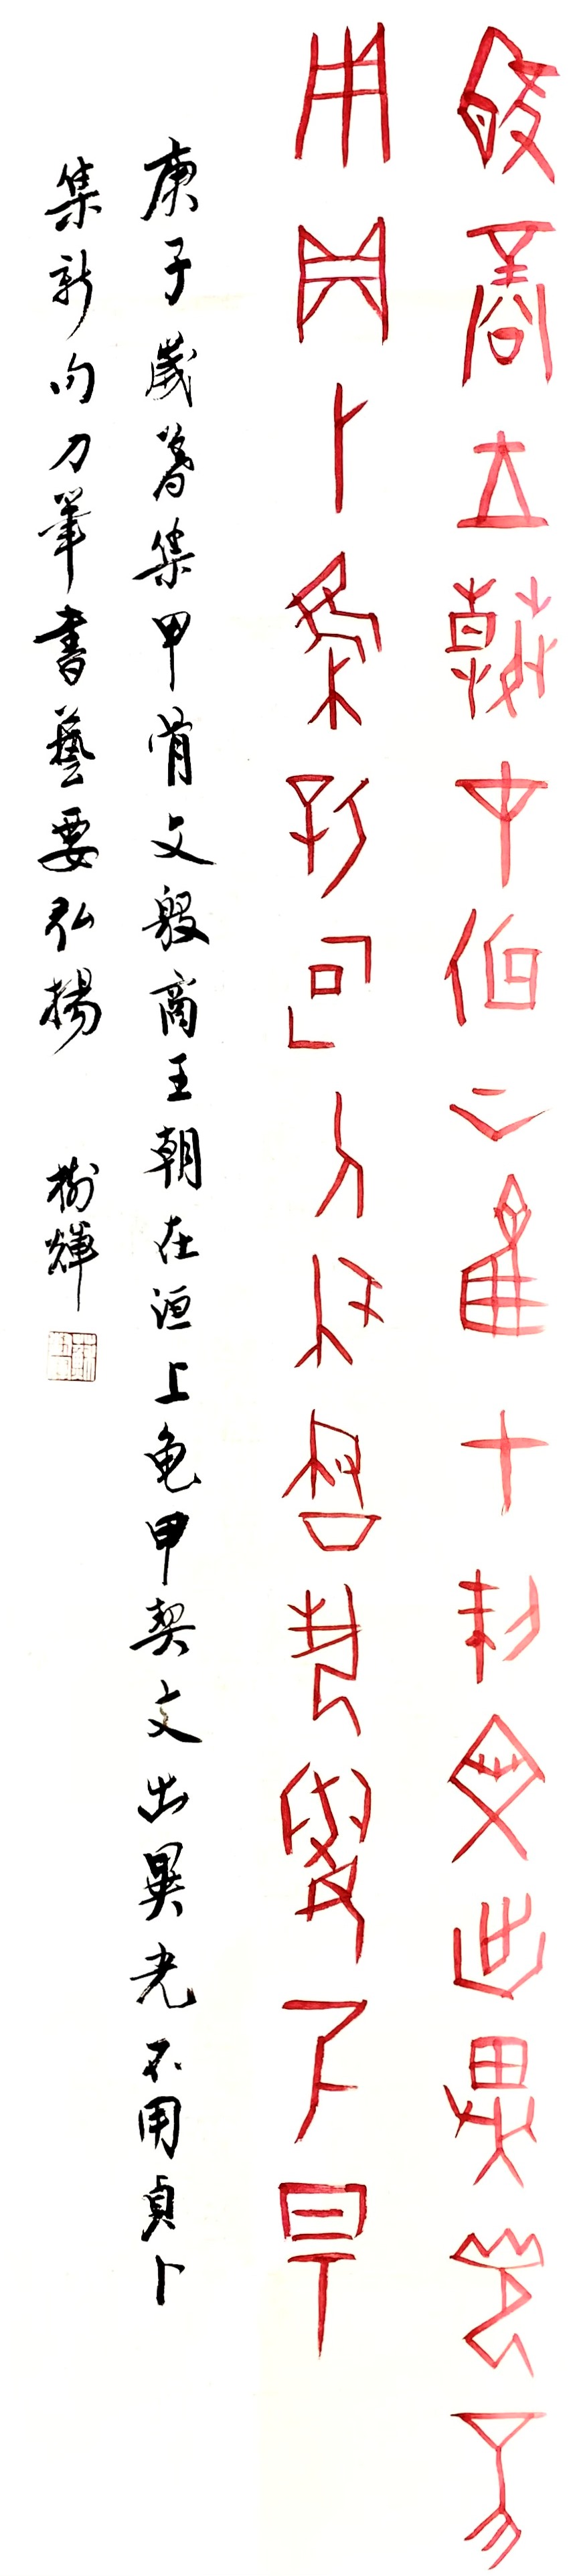 殷商王朝在洹上龜甲契文出異光不
用貞卜集新句刀筆書藝要弘揚
庚子歲暮集甲骨文殷商王朝在洹上龟甲契文出異光不用貞卜
集新句刀筆書藝要弘揚 樹輝